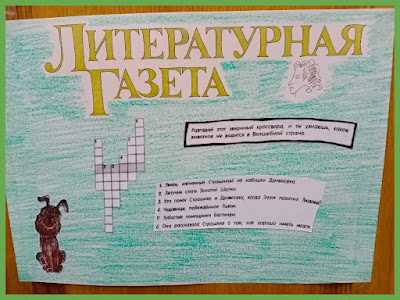 ЛИТЕРАТУРНАЯ
ГАЗЕТА
Разгадай этот звериный кроссворд, и ты узнаешь, какое
животное не водится в Волшебной стране.
1. Звери, изгнанные Страшилой из избушки Дровосека.
2. Летучие слуги Золотой Шапки.
3. Кто помог Страшиле и Дровосеку, когда Элли похитил Людоед?
4. Чудовище, побеждённое Львом.
5. Зубастые помощники Бастинды.
6. Она рассказала Страшиле о том, как хорошо иметь мозги.